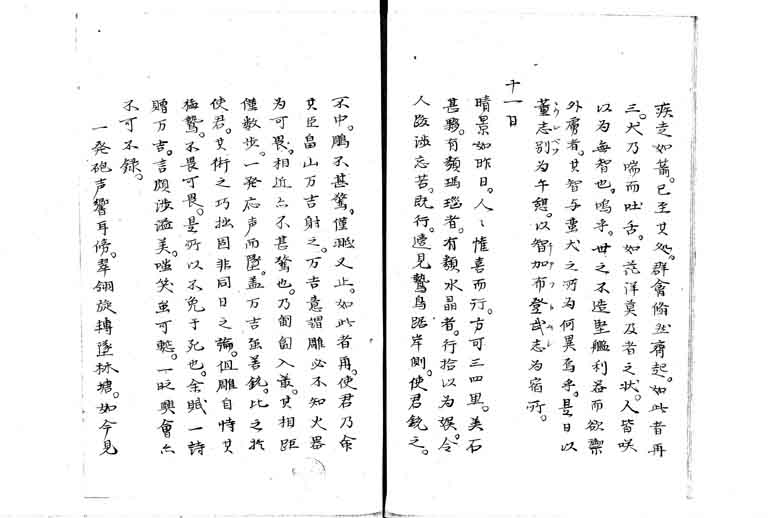 疾走如蕭。已至其処。群會脩然齊起。如此者再
三。犬乃喘而吐舌。如茫洋莫及者之状。人皆咲
以為毎智也。嗚乎。世之不造堅艦利器而欲禦
外虜者。其智与童犬之所為何異焉乎。是日以
董志別為午憩。以智加布登武志為宿所。
十一日
晴景如昨日。人〻惟喜而行。方可三四里。美石
甚夥。有類瑪瑙者。有類水晶者。行拾以為娯。令
人跋渉忘苦。既行。遥見鷲鳥踞岸側。使君銃之。
不中。鵰不甚驚。僅逃又止。如此者再。使君乃命
其臣畠山万吉射之。万吉意謂雕必不知火器
為可畏。相近亦不甚驚也。乃匍匐入叢。其相距
僅数歩。一発応声而墮。蓋万吉至善銃。比之於
使君。其術之巧拙固非同日之論。但雕自恃其
梅鷙。不畏可畏。是所以不免于死也。余賦一詩
贈万吉。言頗渉溢美。嗤笑虽可愁。一時興會亦
不可不録。
一発砲声響耳傍。翠翎旋轉墜林塘。如今見